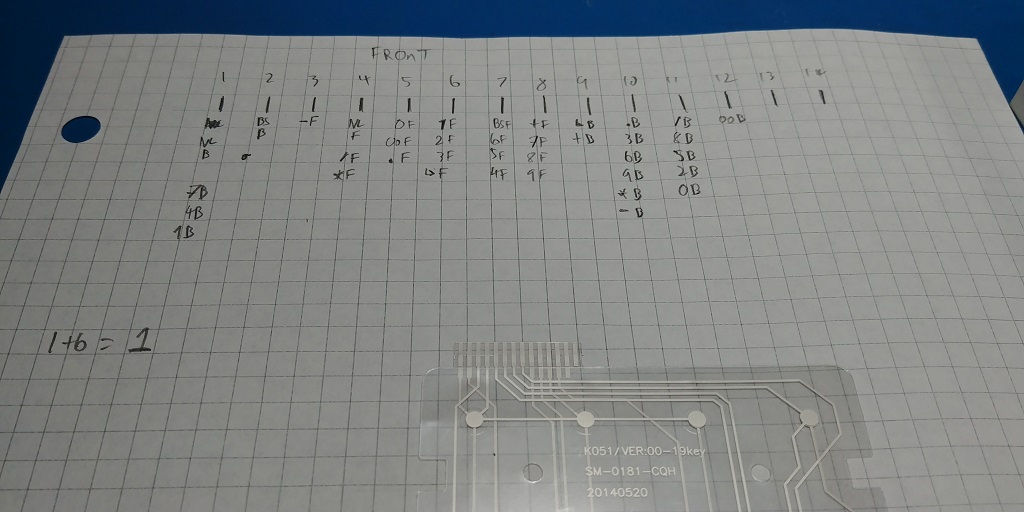 FRONT
1 2 3 4 5 6 7 8 9 10 11 12 13 14
BS -F NL 0F 1F BSF +F B .B /B 00B
NL B F 00F 2F 6F 7F +B 3B 8B
B /F .F 3F 5F 8F 6B 5B
*F F 4F 9F 9B 2B
7B *B 0B
4B -B
1B
1+6 = 1
K051/VER:00-19key
SM-0181-CQH
20140520